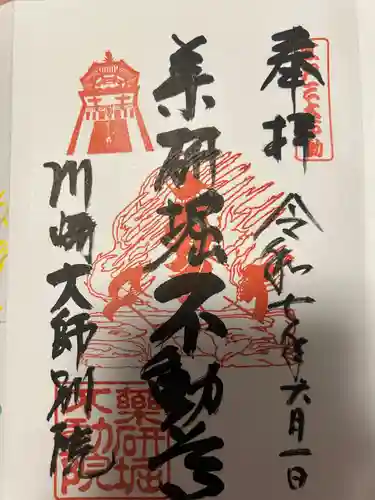 奉拝
令和七年六月一日
薬研堀不動尊
川崎大師別院
薬研堀
不動院